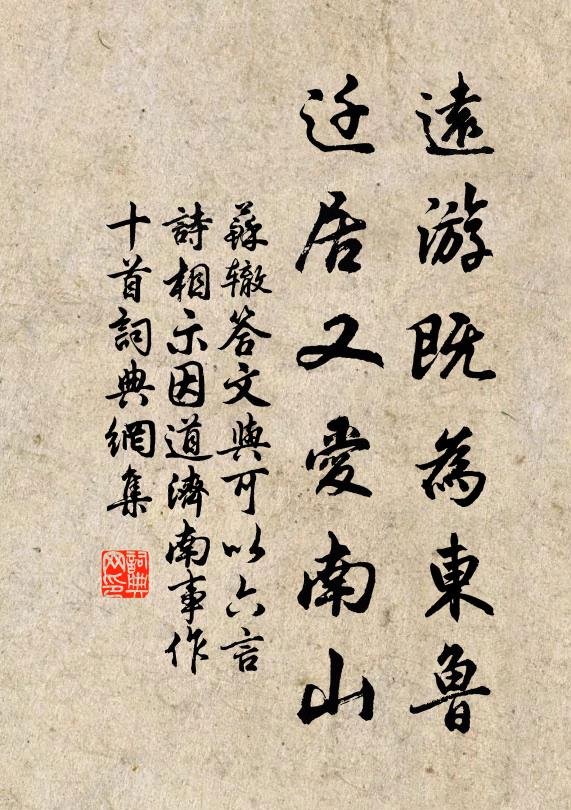 遠游既為東魯
迁居又愛南山
蘇辙答文與可以六言
詩相示因道濟南事作
十首詞典網集
詞典
网印